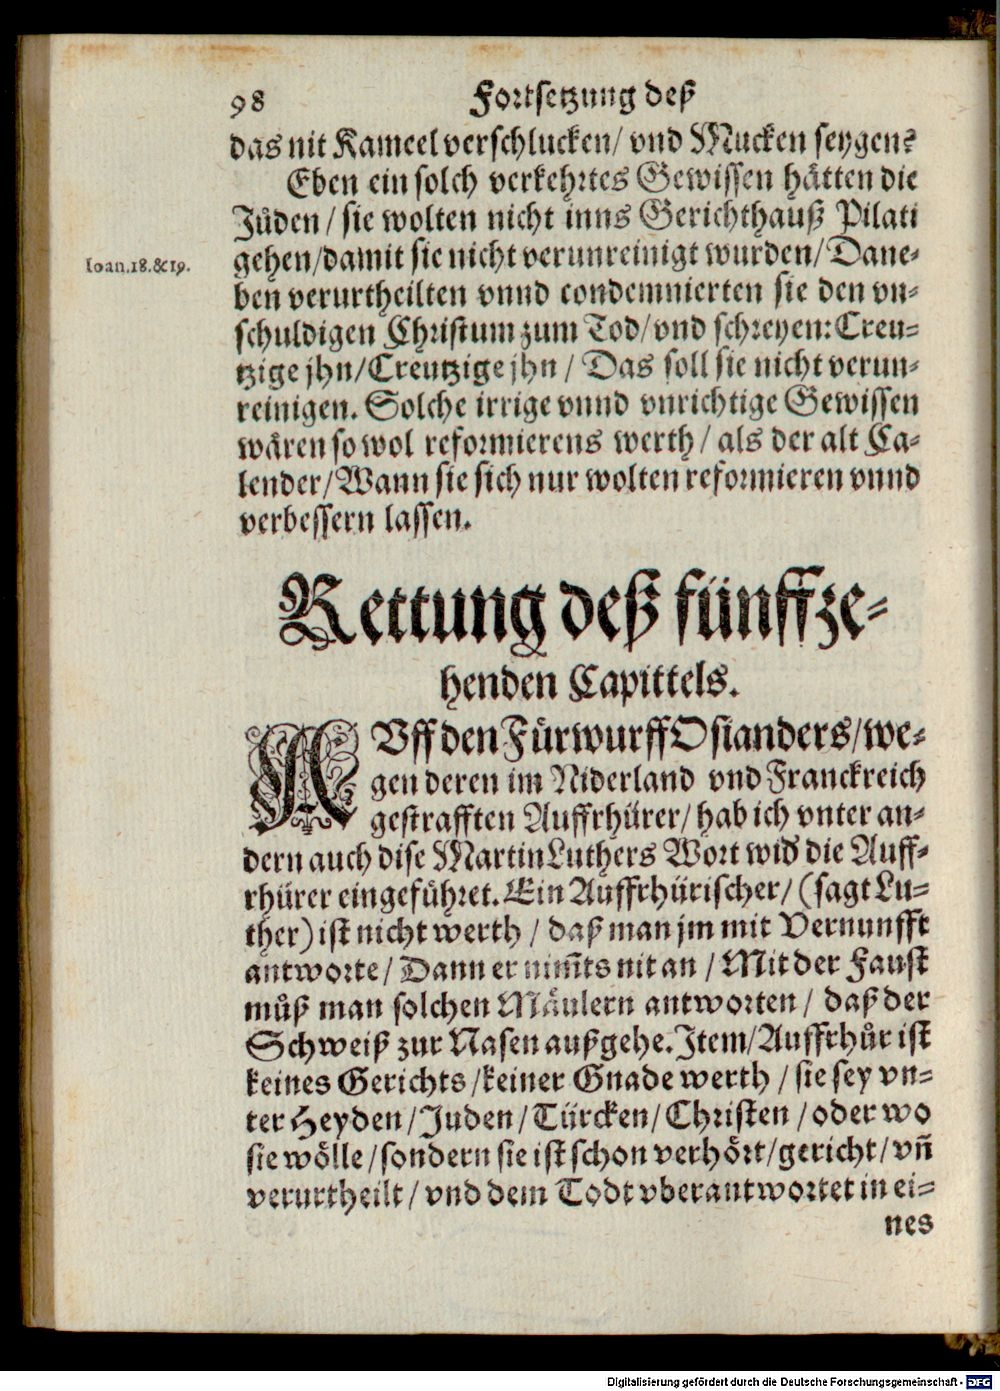 98 Fortsetzung deß
das nit Kameel verschlucken/ vnd Mucken seygen?
Eben ein solch verkehrtes Gewissen hätten die
Jůden / sie wolten nicht inns Gerichthauß Pilati
gehen/damit sie nicht verunreinigt wurden/ Dane-
Ioan.18.&19.
ben verurtheilten vnnd condemnierten sie den vn-
schuldigen Christum zum Tod/vnd schreyen: Creu-
tzige jhn/Creutzige jhn / Das soll sie nicht verun-
reinigen. Solche irrige vnnd vnrichtige Gewissen
wären so wol reformierens werth / als der alt Ca-
lender/Wann sie sich nur wolten reformieren vnnd
verbessern lassen.
Rettung deß fünffze-
henden Capittels.
AVff den Fürwurff Osianders/we-
gen deren im Niderland vnd Franckreich
gestrafften Auffrhürer/ hab ich vnter an-
dern auch dise Martin Luthers Wort wid die Auff-
rhürer eingeführet. Ein Auffrhürischer/ (sagt Lu-
ther) ist nicht werth / daß man jm mit Vernunfft
antworte/ Dann er nim̃ts nit an / Mit der Faust
můß man solchen Mäulern antworten / daß der
Schweiß zur Nasen außgehe. Item/Auffrhůr ist
keines Gerichts /keiner Gnade werth / sie sey vn-
ter Heyden /Juden /Türcken/ Christen /oder wo
sie wölle /sondern sie ist schon verhört/gericht/ vñ
verurtheilt / vnd dem Todt vberantwortet in ei-
nes
Digitalisierung gefördert durch die Deutsche Forschungsgemeinschaft - DFG